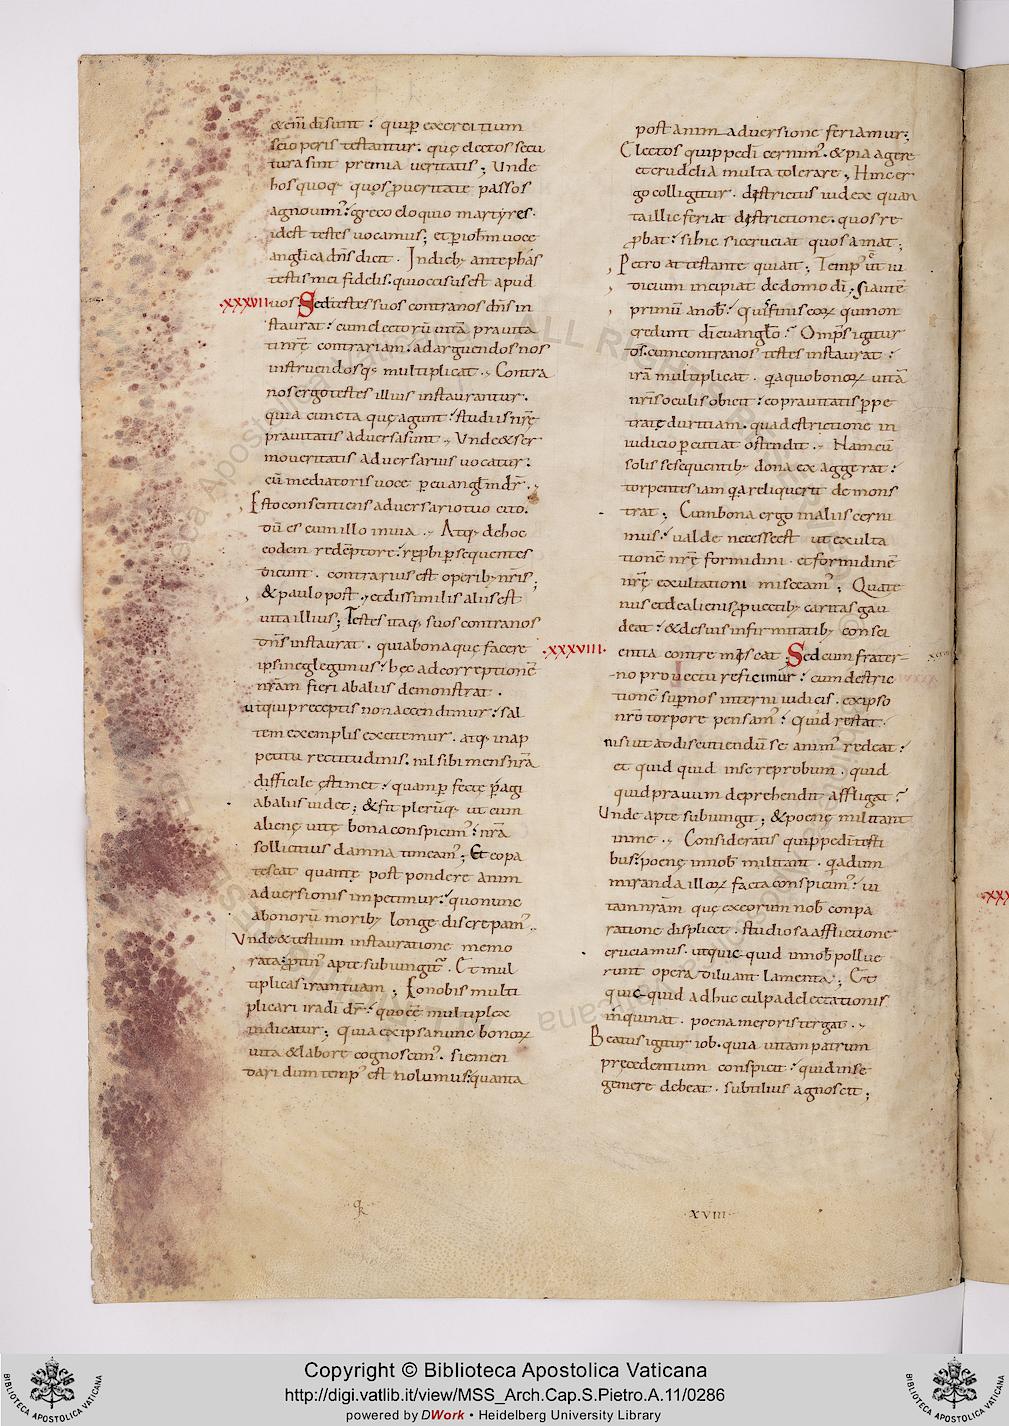 &em̄ disunt : quip̄ exercitium
seio peris testantur. quę electos secu
tura sint premia ueritatis ; Unde
hos quoq; quos ꝓ ueritate passos
agnouim᷒ : greco eloquio martẏres.
idest testes uocamus ; et ꝑ ioh̄m uoce
anglica dn̄s dicit . In dieb; antephás
testis meus fidelis. qui occisus est apud
.xxxvii. uos . Sed testes suos contra nos dn̄s in
staurat : cum electorū uitā prauita
ti nr̄ę contrariam : ad arguendos nos
instruendosq; multiplicat . Contra
nos ergo testes illius instaurantur .
quia cuncta quę agunt : studiis nr̄ę
prauitatis aduersa sunt . Unde & ser
mo ueritatis aduersarius uocatur :
cū mediatoris uoce p̄ euanglm̄ dr̄ .
Esto consentiens aduersario tuo cito .
dū es cum illo in uia . Atq; de hoc
eodem redēptore : reꝓbi ꝑsequentes
dicunt . contrarius est operib; nr̄is ;
& paulo post . et dissimilis aliis est
uita illius ; Testes itaq; suos contra nos
dn̄s instaurat . quia bona quę facere
ipsi neglegimus : hęc ad correptionē
nr̄am fieri ab aliis demonstrat .
ut qui preceptis non accendimur : sal
tem exemplis excitemur . atq; in ap
petitu rectitudinis . nil sibi mens nr̄a
difficile ęstimet : quam ꝑfectę ꝑagi
ab aliis uidet ; & fit plerūq; ut cum
alienę uitę bona conspicim᷒ : nr̄a
sollicitius damna timeam᷒ ; Et eo pa
tescat quantę post pondere anim
aduersionis impetimur : quo nunc
a bonorū morib; longe discrepam᷒ .
Unde & testium instauratione memo
rata : ꝓtin᷒ apte subiungit᷒ . Et mul
tiplicas iram tuam ; Eo nobis multi
plicari ira di dr̄ : quo eē̄ multiplex
indicatur ; Quia ex ipsa nunc bonoꝝ
uita & labore cognoscim᷒ . si emen
dari dum temp᷒ est nolumus : quanta
post animaduersione feriamur ;
Electos quippe di cernim᷒ . & pia agere
et crudelia multa tolerare ; Hinc er
go colligitur . destrictus iudex quan
ta illic feriat destrictione . quos re
ꝓbat : si hic sic cruciat quos amat ;
Petro attestante qui ait ; Temp᷒ ē ut iu
dicium incipiat de domo dī ; Si autē
primū a nob̄ : quis finis eoꝝ qui non
credunt dī euanglo ? Omp̄s igitur
ds̄ . cum contra nos testes instaurat :
irā multiplicat . q̇a quo bonoꝝ uitā
nr̄is oculis obicit : eo prauitatis ꝑpe
tratę duritiam . qua destrictione in
iudicio ꝑcutiat ostendit . Nam cū
solis se sequentib; dona exaggerat :
torpentes iam q̇a reliquerit demons
trat ; Cum bona ergo malius cerni
mus : ualde necesse est ut exulta
tionē nr̄ę formidini . et formidinē
nr̄ę exultationi misceam᷒ ; Quate
nus et de alienis ꝓuectib; caritas gau
deat : & de suis infirmitatib; consci
.xxxviii. entia conterere misceat ; Sed cum frater
no prouectu reficimur : cum destric
tionē sup̄nos interni iudicis . ex ipso
nr̄o torpore pensam᷒ : quid restat .
nisi ut ad discutiendū se anim᷒ redeat :
et quid quid in se reprobum . quid
quid prauum deprehendit affligat ?
Unde apte subiungit ; & poenę militant
in me . Consideratis quippe dī testi
bus : poenę in nob̄ militant . q̇a dum
miranda illoꝝ facta conspicim᷒ : ui
tam nr̄am quę ex eorum nob̄ conpa
ratione displicet . studiosa afflictione
cruciamus . ut quic quid in nob̄ pollue
runt opera diluant lamenta ; Et
quic quid adhuc culpa delectationis
inquinat . poena meroris tergat .
Beatus igitur iob . quia uitam patrum
precedentium conspicit : quid in se
gemere debeat . subtilius agnoscit ;
xviii
Copyright © Biblioteca Apostolica Vaticana
http://digi.vatlib.it/view/MSS_Arch.Cap.S.Pietro.A.11/0286
powered by DWork • Heidelberg University Library